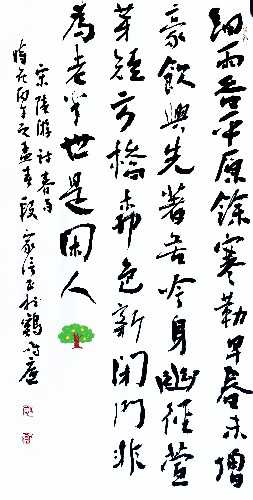 細雨吞平原餘寒勒早春未增
豪飲興先著苦吟身幽徑萱
芽短方橋柳色新閉門非
為老半世是閑人
宋陸游詩春雨
時在丙午之孟春段家信書於鶴